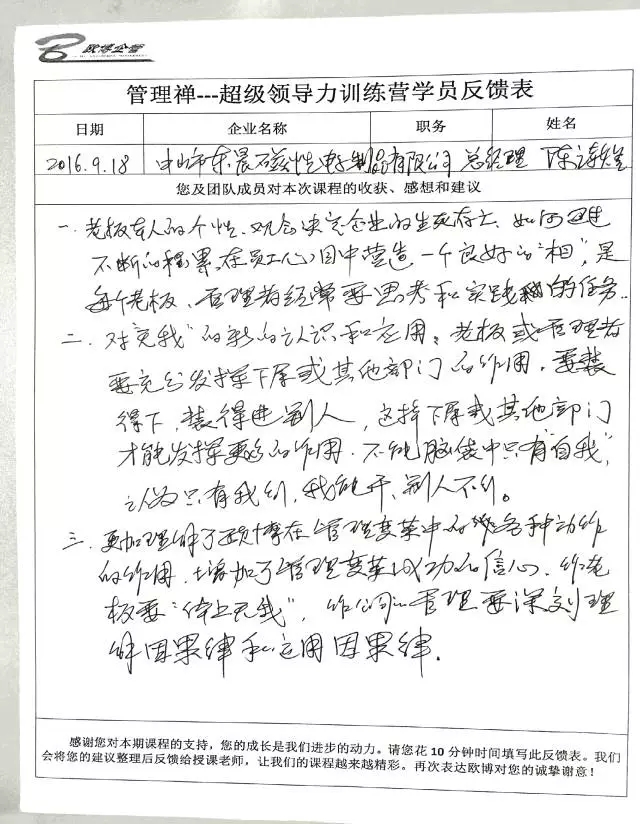 欧博企管
管理禅---超级领导力训练营学员反馈表
日期 企业名称 职务 姓名
2016.9.18 中山市东晨磁性电子制品有限公司 总经理 陈
您及团队成员对本次课程的收获、感想和建议
一、老板本人的个性、观念决定企业的生死存亡、如何
不断的积累在员工心目中营造一个良好的“相”,是
每个老板、管理者经常要思考和实践的任务..
二、对“无我”的新的认识和应用。老板或管理者
要充分发挥下属或其他部门的作用,要装
得下,装得进别人,这样下属或其他部门
才能发挥更多的作用.不能脑袋中只有“自我”,
认为只有我行,我能干、别人不行。
三、更加理解了欧博在管理变革中的各种动作
的作用,增加了管理变革成功的信心,作老
板要“信上无我”,作公司管理要深刻理
解因果律和运用因果律.
感谢您对本期课程的支持,您的成长是我们进步的动力。请您花 10 分钟时间填写此反馈表。我们
会将您的建议整理后反馈给授课老师,让我们的课程越来越精彩。再次表达欧博对您的诚挚谢意!